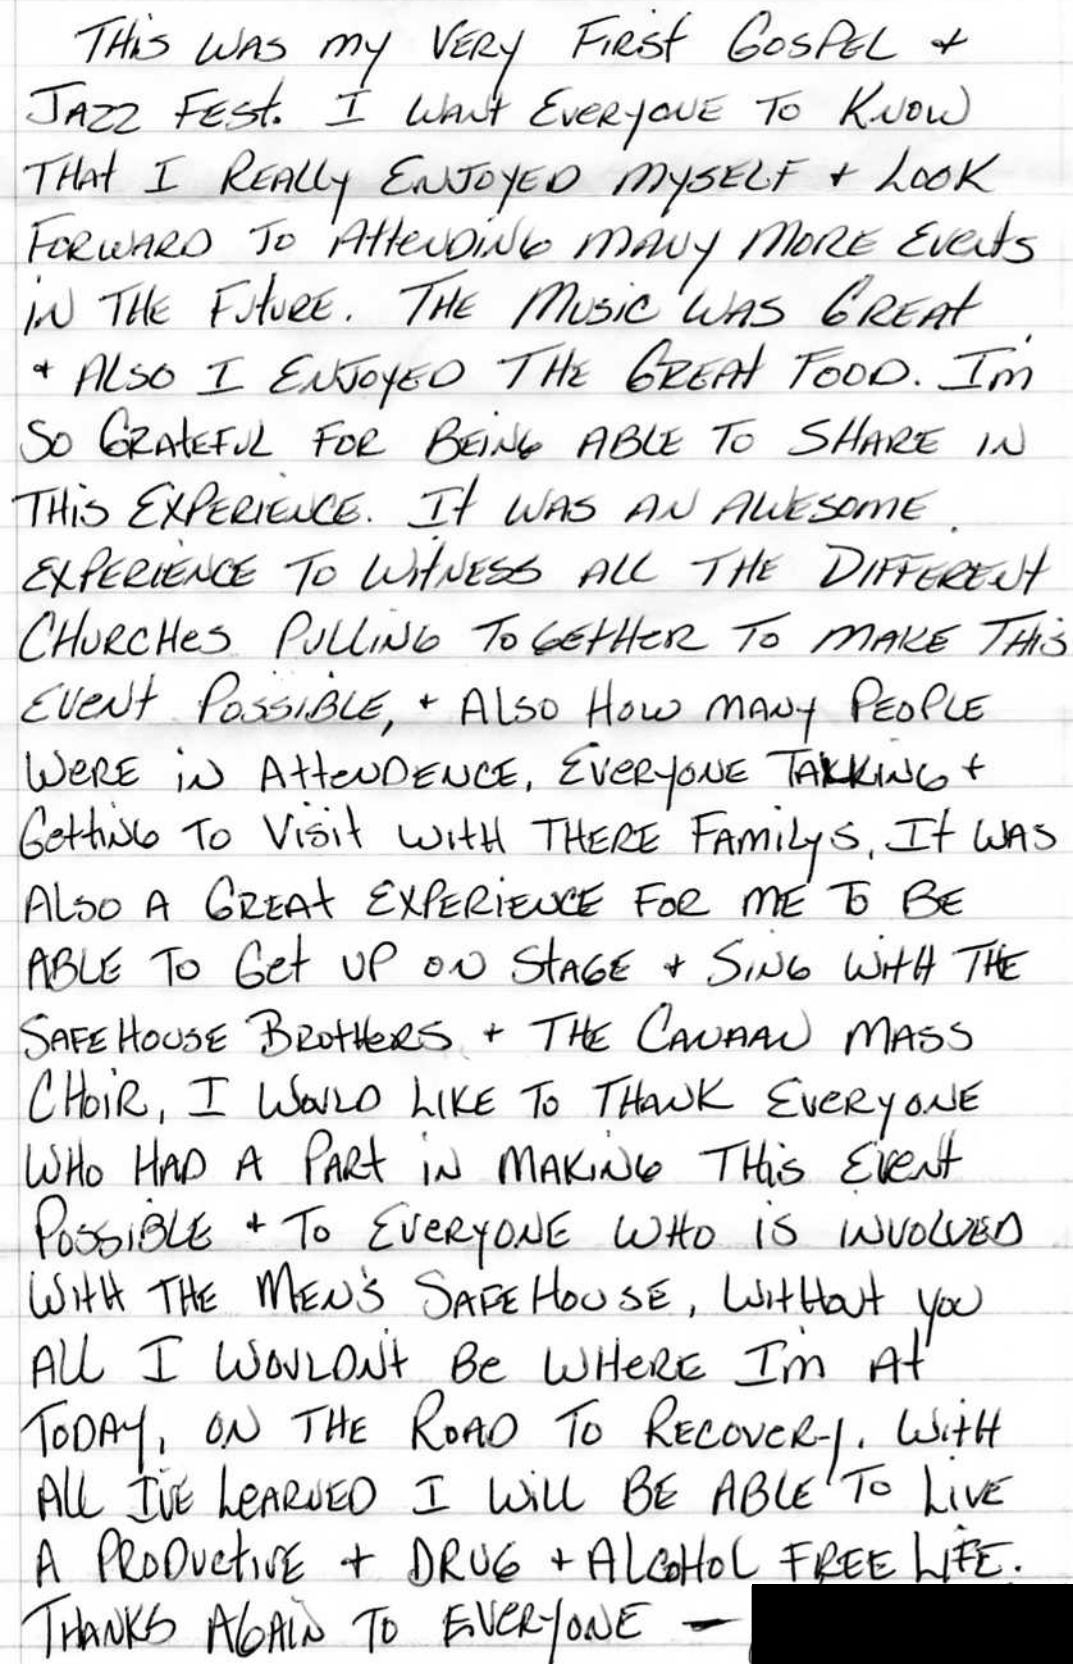 This was my very first Gospel +
Jazz Fest. I want everyone to know
that I really enjoyed myself + look
forward to attending many more events
in the future. The music was great
+ also I enjoyed the great food. I'm
so grateful for being able to share in
this experience. It was an awesome
experience to witness all the different
churches pulling together to make this
event possible, + also how many people
were in attendence, everyone talking +
getting to visit with there familys, It was
also a great experience for me to be
able to get up on stage + sing with the
SafeHouse Brothers + the Canaan Mass
Choir, I would like to thank everyone
who had a part in making this event
possible + to everyone who is involved
with the Men's SafeHouse, without you
all I wouldn't be where I'm at
today, on the road to recovery. With
all I've learned I will be able to live
a productive + drug + alcohol free life.
Thanks again to everyone —